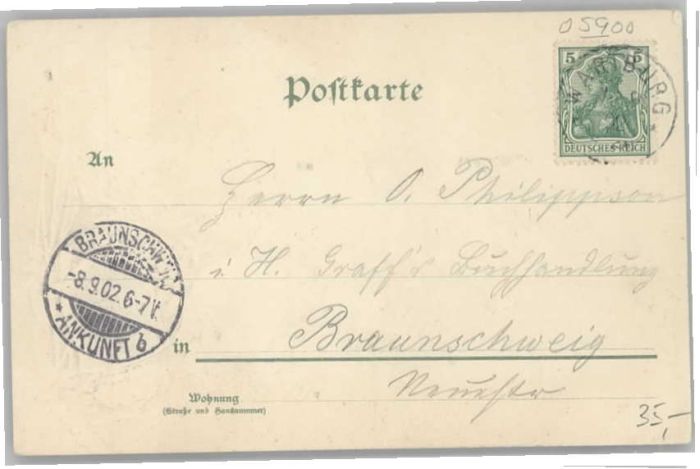 05900
5 5
WARTBURG
DEUTSCHES REICH
Postkarte
An
Herrn O. Philippson
i/ H. Graff's Buchhandlung
BRAUNSCHW
-8.9.02.6-7V.
* ANKUNFT 6
in
Braunschweig
Neuestr
Wohnung
(Straße und Hausnummer)
35,-